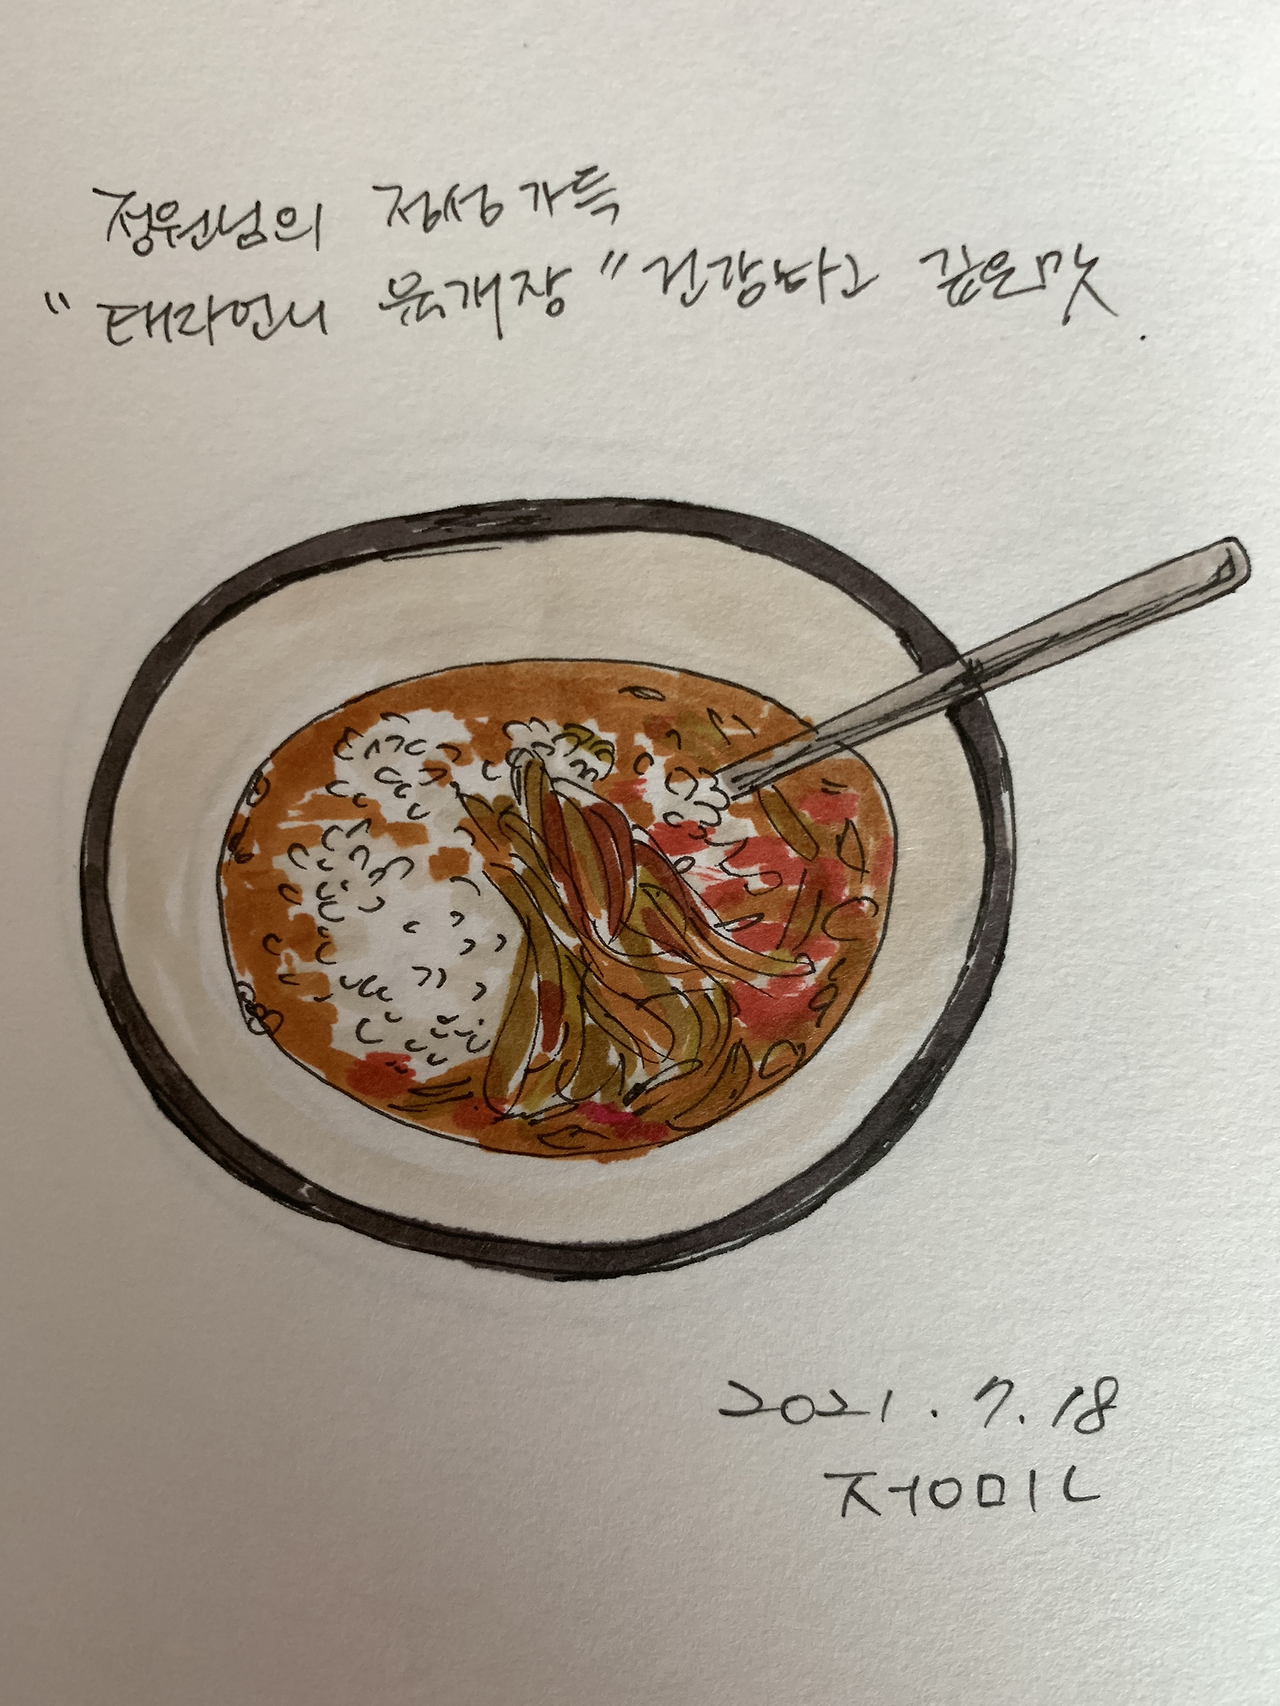 정원님의 정성가득
"태라언니 묵개장" 건강하고 깊은맛.
2021.7.18
ㅈㅓㅇㅁㅣㄴ